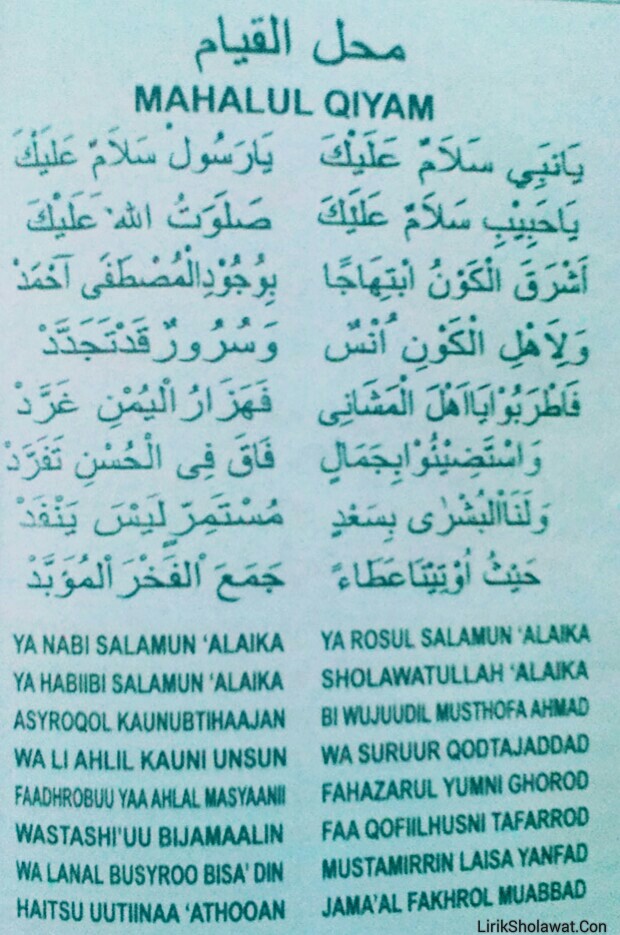 محل القيام
MAHALUL QIYAM
يَانَبِي سَلَامٌ عَلَيْكَ يَارَسُولْ سَلَامٌ عَلَيْكَ
يَاحَبِيْبِ سَلَامٌ عَلَيْكَ صَلَوَتُ اللهْ عَلَيْكَ
اَشْرَقَ الْكَوْنُ ابْتِهَاجًا بِوُجُوْدِالْمُصْطَفَى آحْمَدْ
وَلِاَهْلِ الْكَوْنِ اُنْسٌ وَسُرُورٌ قَدْتَجَدَّدْ
فَاطْرَبُوْايَااَهْلَ الْمَشَانِى فَهَزَارُ الْيُمْنِ غَرَّدْ
وَاسْتَضِيْئُوْابِجَمَالٍ فَاقَ فِى الْحُسْنِ تَفَرَّدْ
وَلَنَاالْبُشْرٰى بِسَعْدٍ مُسْتَمِرٍّ لَيْسَ يَنْفَدْ
حَيْثُ اُوْتِيْنَاعَطَاءً جَمَعَ الْفَخْرَ الْمُؤَبَّدْ
YA NABI SALAMUN ‘ALAIKA YA ROSUL SALAMUN ‘ALAIKA
YA HABIIBI SALAMUN ‘ALAIKA SHOLAWATULLAH ‘ALAIKA
ASYROQOL KAUNUBTIHAAJAN BI WUJUUDIL MUSTHOFA AHMAD
WA LI AHLIL KAUNI UNSUN WA SURUUR QODTAJADDAD
FAADHROBUU YAA AHLAL MASYAANII FAHAZARUL YUMNI GHOROD
WASTASHI'UU BIJAMAALIN FAA QOFIILHUSNI TAFARROD
WA LANAL BUSYROO BISA' DIN MUSTAMIRRIN LAISA YANFAD
HAITSU UUTIINAA ‘ATHOOAN JAMA'AL FAKHROL MUABBAD
LirikSholawat.Con